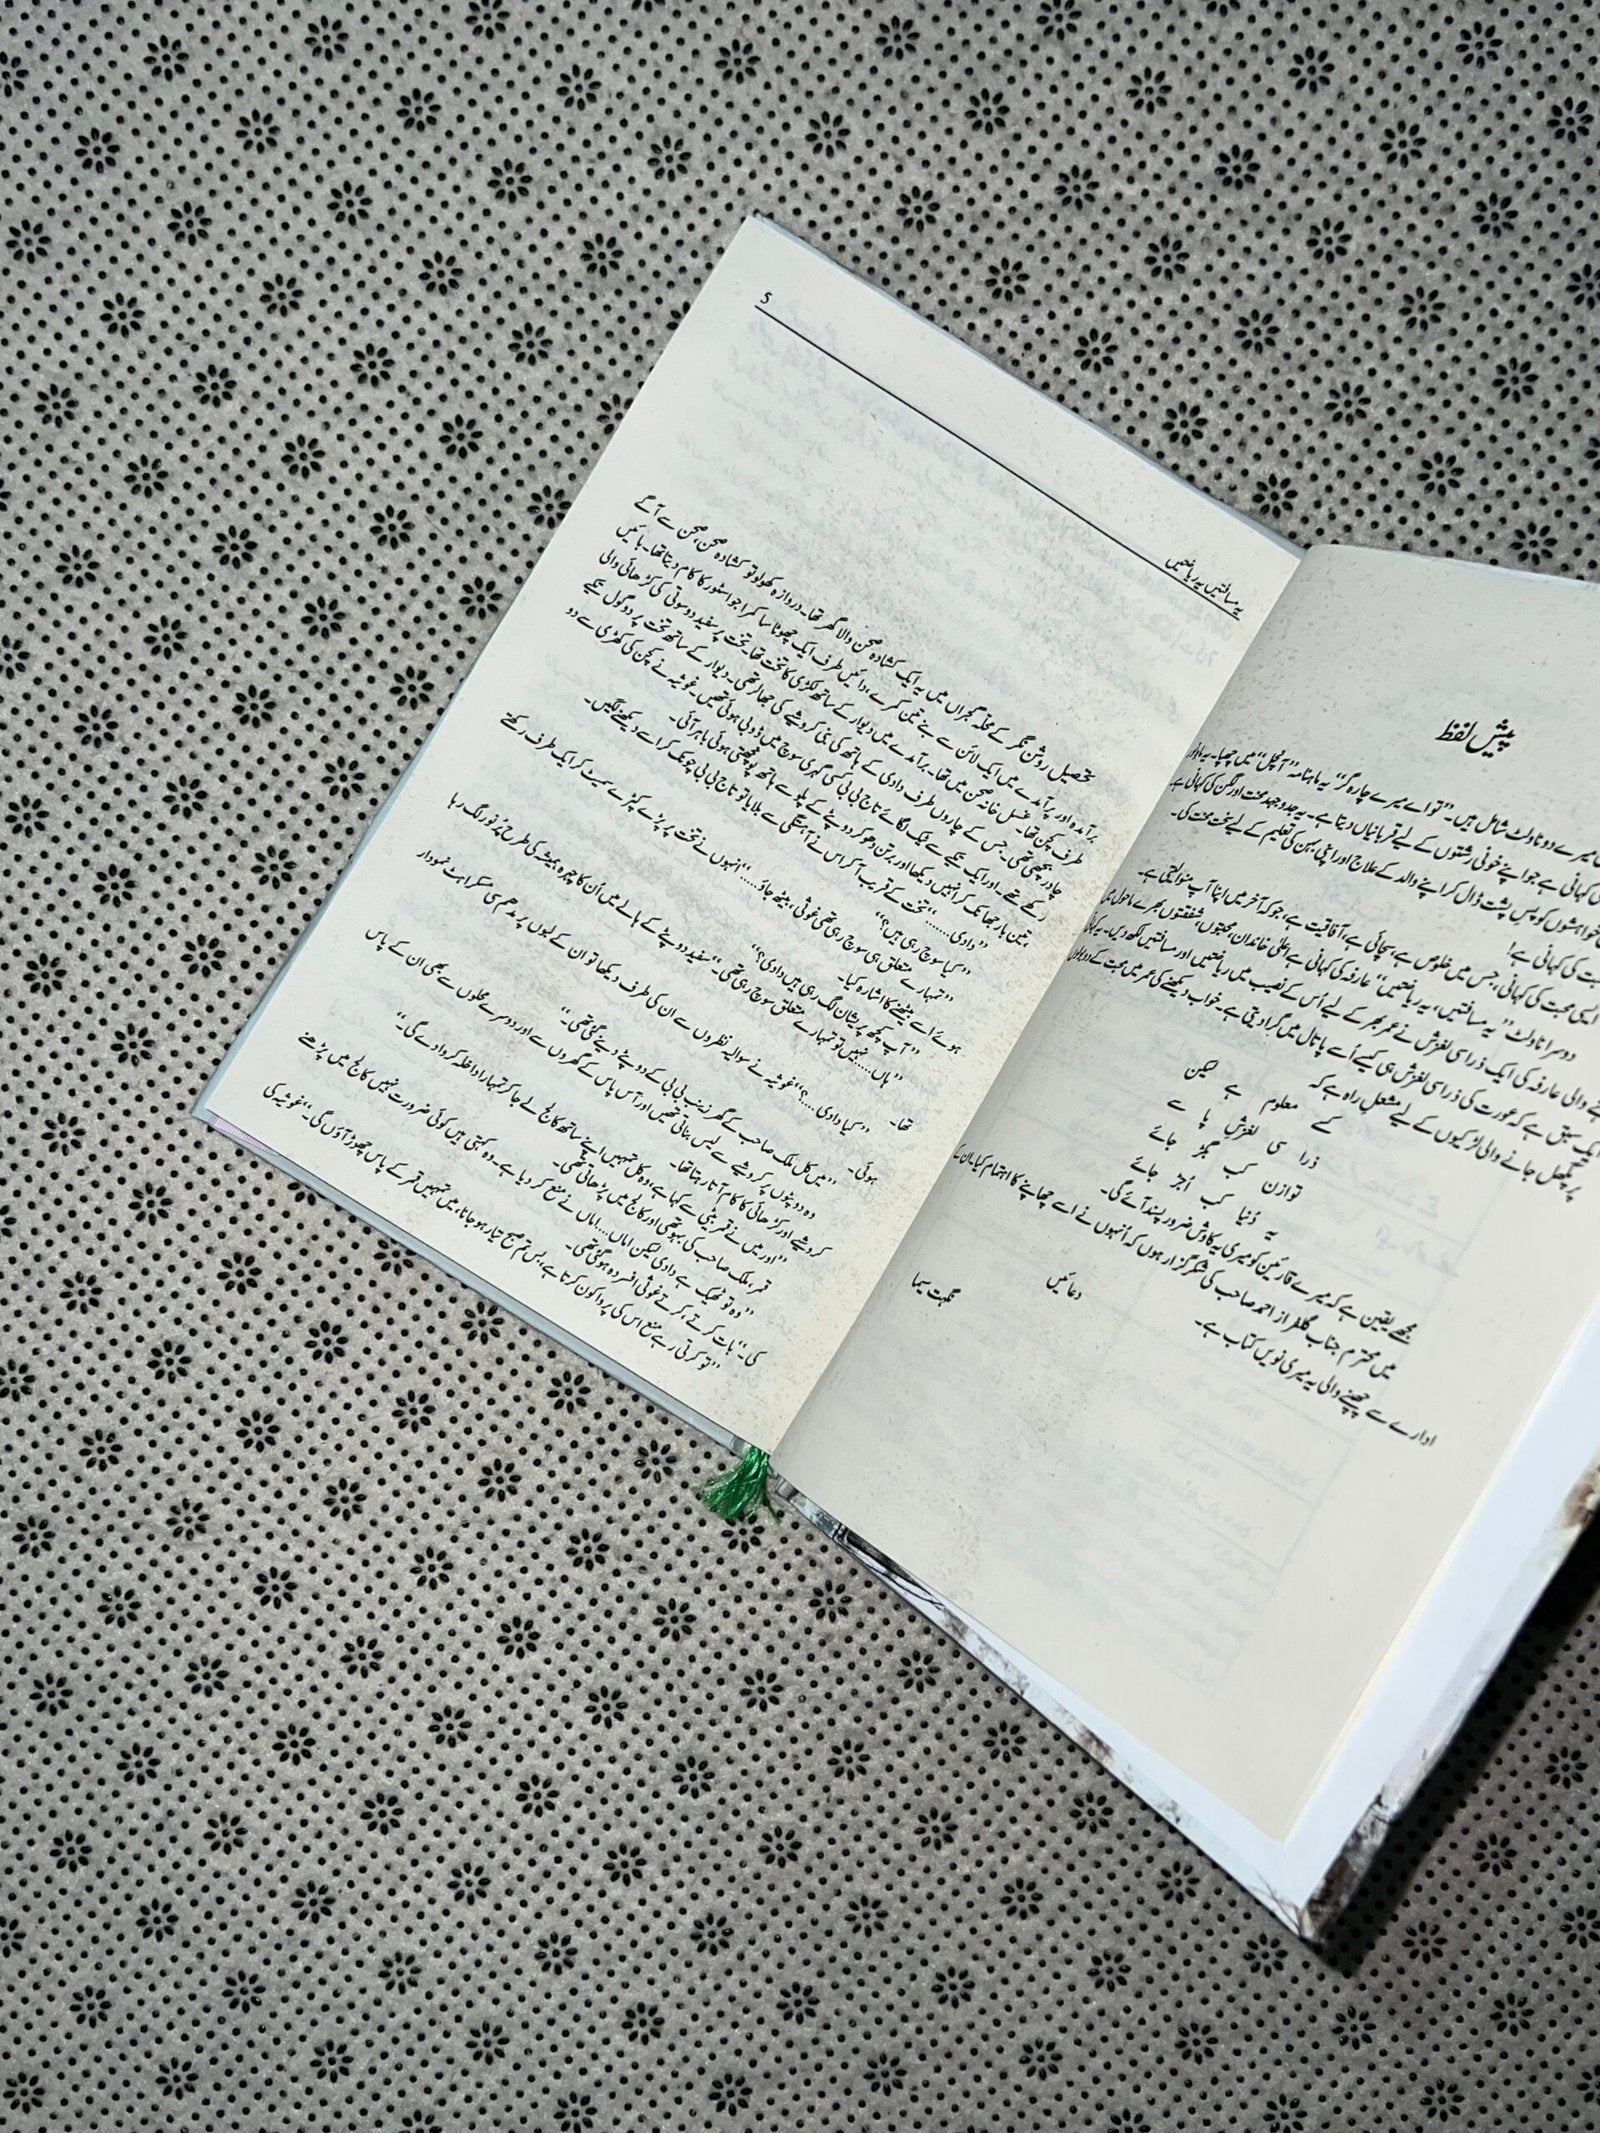 پیش لفظ
میرے دو ناولٹ شامل ہیں۔ ”تو اے میرے چارہ گر“ یہ ماہنامہ ”آنچل“ میں چھپا۔ یہ
کہانی ہے جو اپنے خونی رشتوں کے لیے قربانیاں دیتا ہے۔ یہ جدوجہد محنت اور لگن کی کہانی ہے
خواہشوں کو پس پشت ڈال کر اپنے والد کے علاج اور اپنی بہن کی تعلیم کے لیے سخت محنت کی۔
کی کہانی ہے!
ایسی محبت کی کہانی، جس میں خلوص ہے، سچائی ہے، آفاقیت ہے، جو کہ آخر میں اپنا آپ منوا لیتی ہے۔
دوسرا ناولٹ ”یہ مسافتیں، یہ ریاضتیں“ عارفہ کی کہانی ہے اعلیٰ خاندان، محبتوں، شفقتوں بھرے ماحول میں
والی عارفہ کی ایک ذرا سی لغزش نے عمر بھر کے لیے اُس کے نصیب میں ریاضتیں اور مسافتیں لکھ دیں۔ یہ کہانی
ایک سبق ہے کہ عورت کی ذرا سی لغزش ہی کیسے اُسے پاتال میں گرا دیتی ہے۔ خواب دیکھنے کی عمر میں محبت کے دو بولوں
پر پگھل جانے والی لڑکیوں کے لیے مشعل راہ ہے کہ
کسے معلوم ہے لیکن
ذرا سی لغزشِ پا سے
توازن کب بگڑ جائے
یہ دُنیا کب اُجڑ جائے
مجھے یقین ہے کہ میرے قارئین کو میری یہ کاوش ضرور پسند آئے گی۔
میں محترم جناب گلفراز احمد صاحب کی شکر گزار ہوں کہ اُنہوں نے اسے چھاپنے کا اہتمام کیا۔ ان کے
ادارے سے چھپنے والی یہ میری نویں کتاب ہے۔
دعائیں
نگہت سیما
یہ مسافتیں یہ ریاضتیں
5
تحصیل روشن نگر کے محلّہ گجراں میں یہ ایک کشادہ صحن والا گھر تھا۔ دروازہ کھولو تو کشادہ صحن، صحن سے آگے
برآمدہ اور برآمدے میں ایک لائن سے بنے تین کمرے، دائیں طرف ایک چھوٹا سا کمرا جو اسٹور کا کام دیتا تھا۔ بائیں
طرف کچن تھا۔ غسل خانہ صحن میں تھا۔ برآمدے میں دیوار کے ساتھ لکڑی کا تخت تھا۔ تخت پر سفید دوسوتی کی کڑھائی والی
چادر بچھی تھی۔ جس کے چاروں طرف دادی کے ہاتھ کی بنی کروشیے کی جھالر تھی۔ دیوار کے ساتھ تخت پر دو گول تکیے
رکھے تھے۔ اور ایک تکیے سے ٹیک لگائے تاج بی بی کسی گہری سوچ میں ڈوبی ہوئی تھیں۔ غوثیہ نے کچن کی کھڑکی سے دو
تین بار جھانک کر انہیں دیکھا اور برتن دھو کر دوپٹے کے پلو سے ہاتھ پونچھتی ہوئی باہر آئی۔
”دادی......“ تخت کے قریب آ کر اس نے آہستگی سے بلایا تو تاج بی بی چونک کر اسے دیکھنے لگیں۔
”کیا سوچ رہی ہیں؟“
”تمہارے متعلق ہی سوچ رہی تھی غوثی، بیٹھ جاؤ......“ انہوں نے تخت پر پڑے کپڑے سمیٹ کر ایک طرف رکھتے
ہوئے اسے بیٹھنے کا اشارہ کیا۔
”آپ کچھ پریشان لگ رہی ہیں دادی؟“
”ہاں...... نہیں تو تمہارے متعلق سوچ رہی تھی۔“ سفید دوپٹے کے ہالے میں اُن کا چہرہ ہمیشہ کی طرح پُرنور لگ رہا
تھا۔
”کیا دادی....؟“ غوثیہ نے سوالیہ نظروں سے ان کی طرف دیکھا تو ان کے لبوں پر مدھم سی مسکراہٹ نمودار
ہوئی۔
”میں کل ملک صاحب کے گھر زینب بی بی کے دوپٹے دینے گئی تھی۔“
وہ دوپٹوں پر کروشیے سے لیس بناتی تھیں اور آس پاس کے گھروں سے اور دوسرے محلوں سے بھی ان کے پاس
کروشیے اور کڑھائی کا کام آتا رہتا تھا۔
”اور میں نے قمر بیٹی سے کہا ہے، وہ کل تمہیں اپنے ساتھ کالج لے جا کر تمہارا داخلہ کروا دے گی۔“
قمر، ملک صاحب کی بہو تھی اور کالج میں پڑھاتی تھی۔
”وہ تو ٹھیک ہے دادی لیکن اماں... اماں نے منع کر دیا ہے۔ وہ کہتی ہیں کوئی ضرورت نہیں کالج میں پڑھنے
کی۔“ بات کرتے، کرتے غوثی افسردہ ہو گئی تھی۔
”تو کرتی رہے منع اس کی پروا کون کرتا ہے، بس تم صبح تیار ہو جانا، میں تمہیں قمر کے پاس چھوڑ آؤں گی۔“ غوثیہ کی